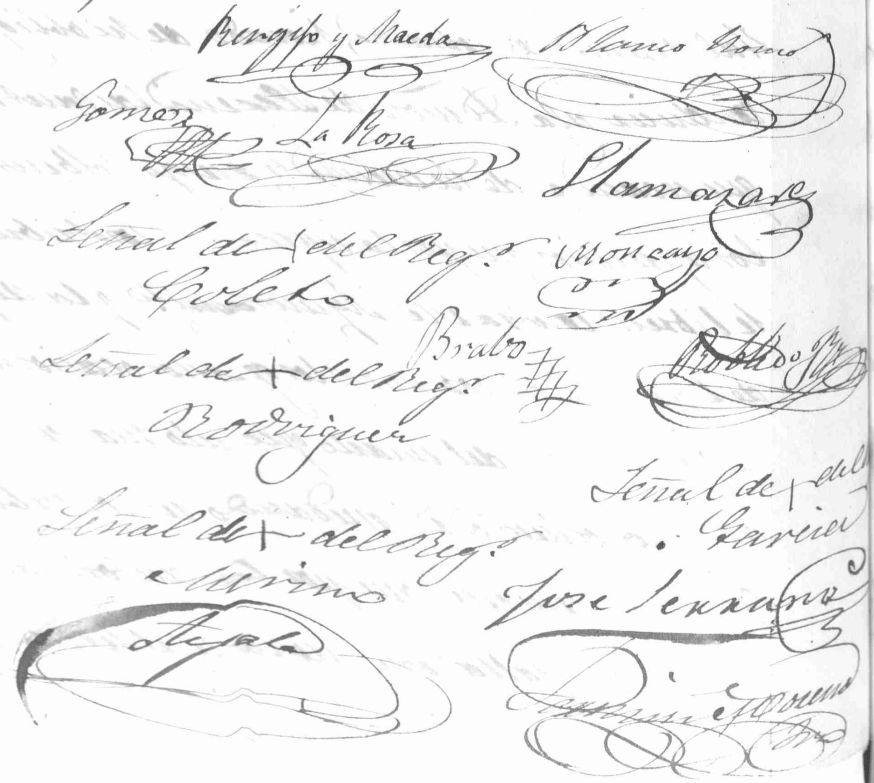 Rengifo y Maeda
Blanco Romo
Gomez
La Rosa
Llamazares
Señal de + del Reg.r
Coleto
Moncayo
Brabo
Robledo
Señal de + del Reg.r
Rodriguez
Señal de + del
Garcia
Señal de + del Reg.r
Merino
Jose Serrano
Ayala
Moreno